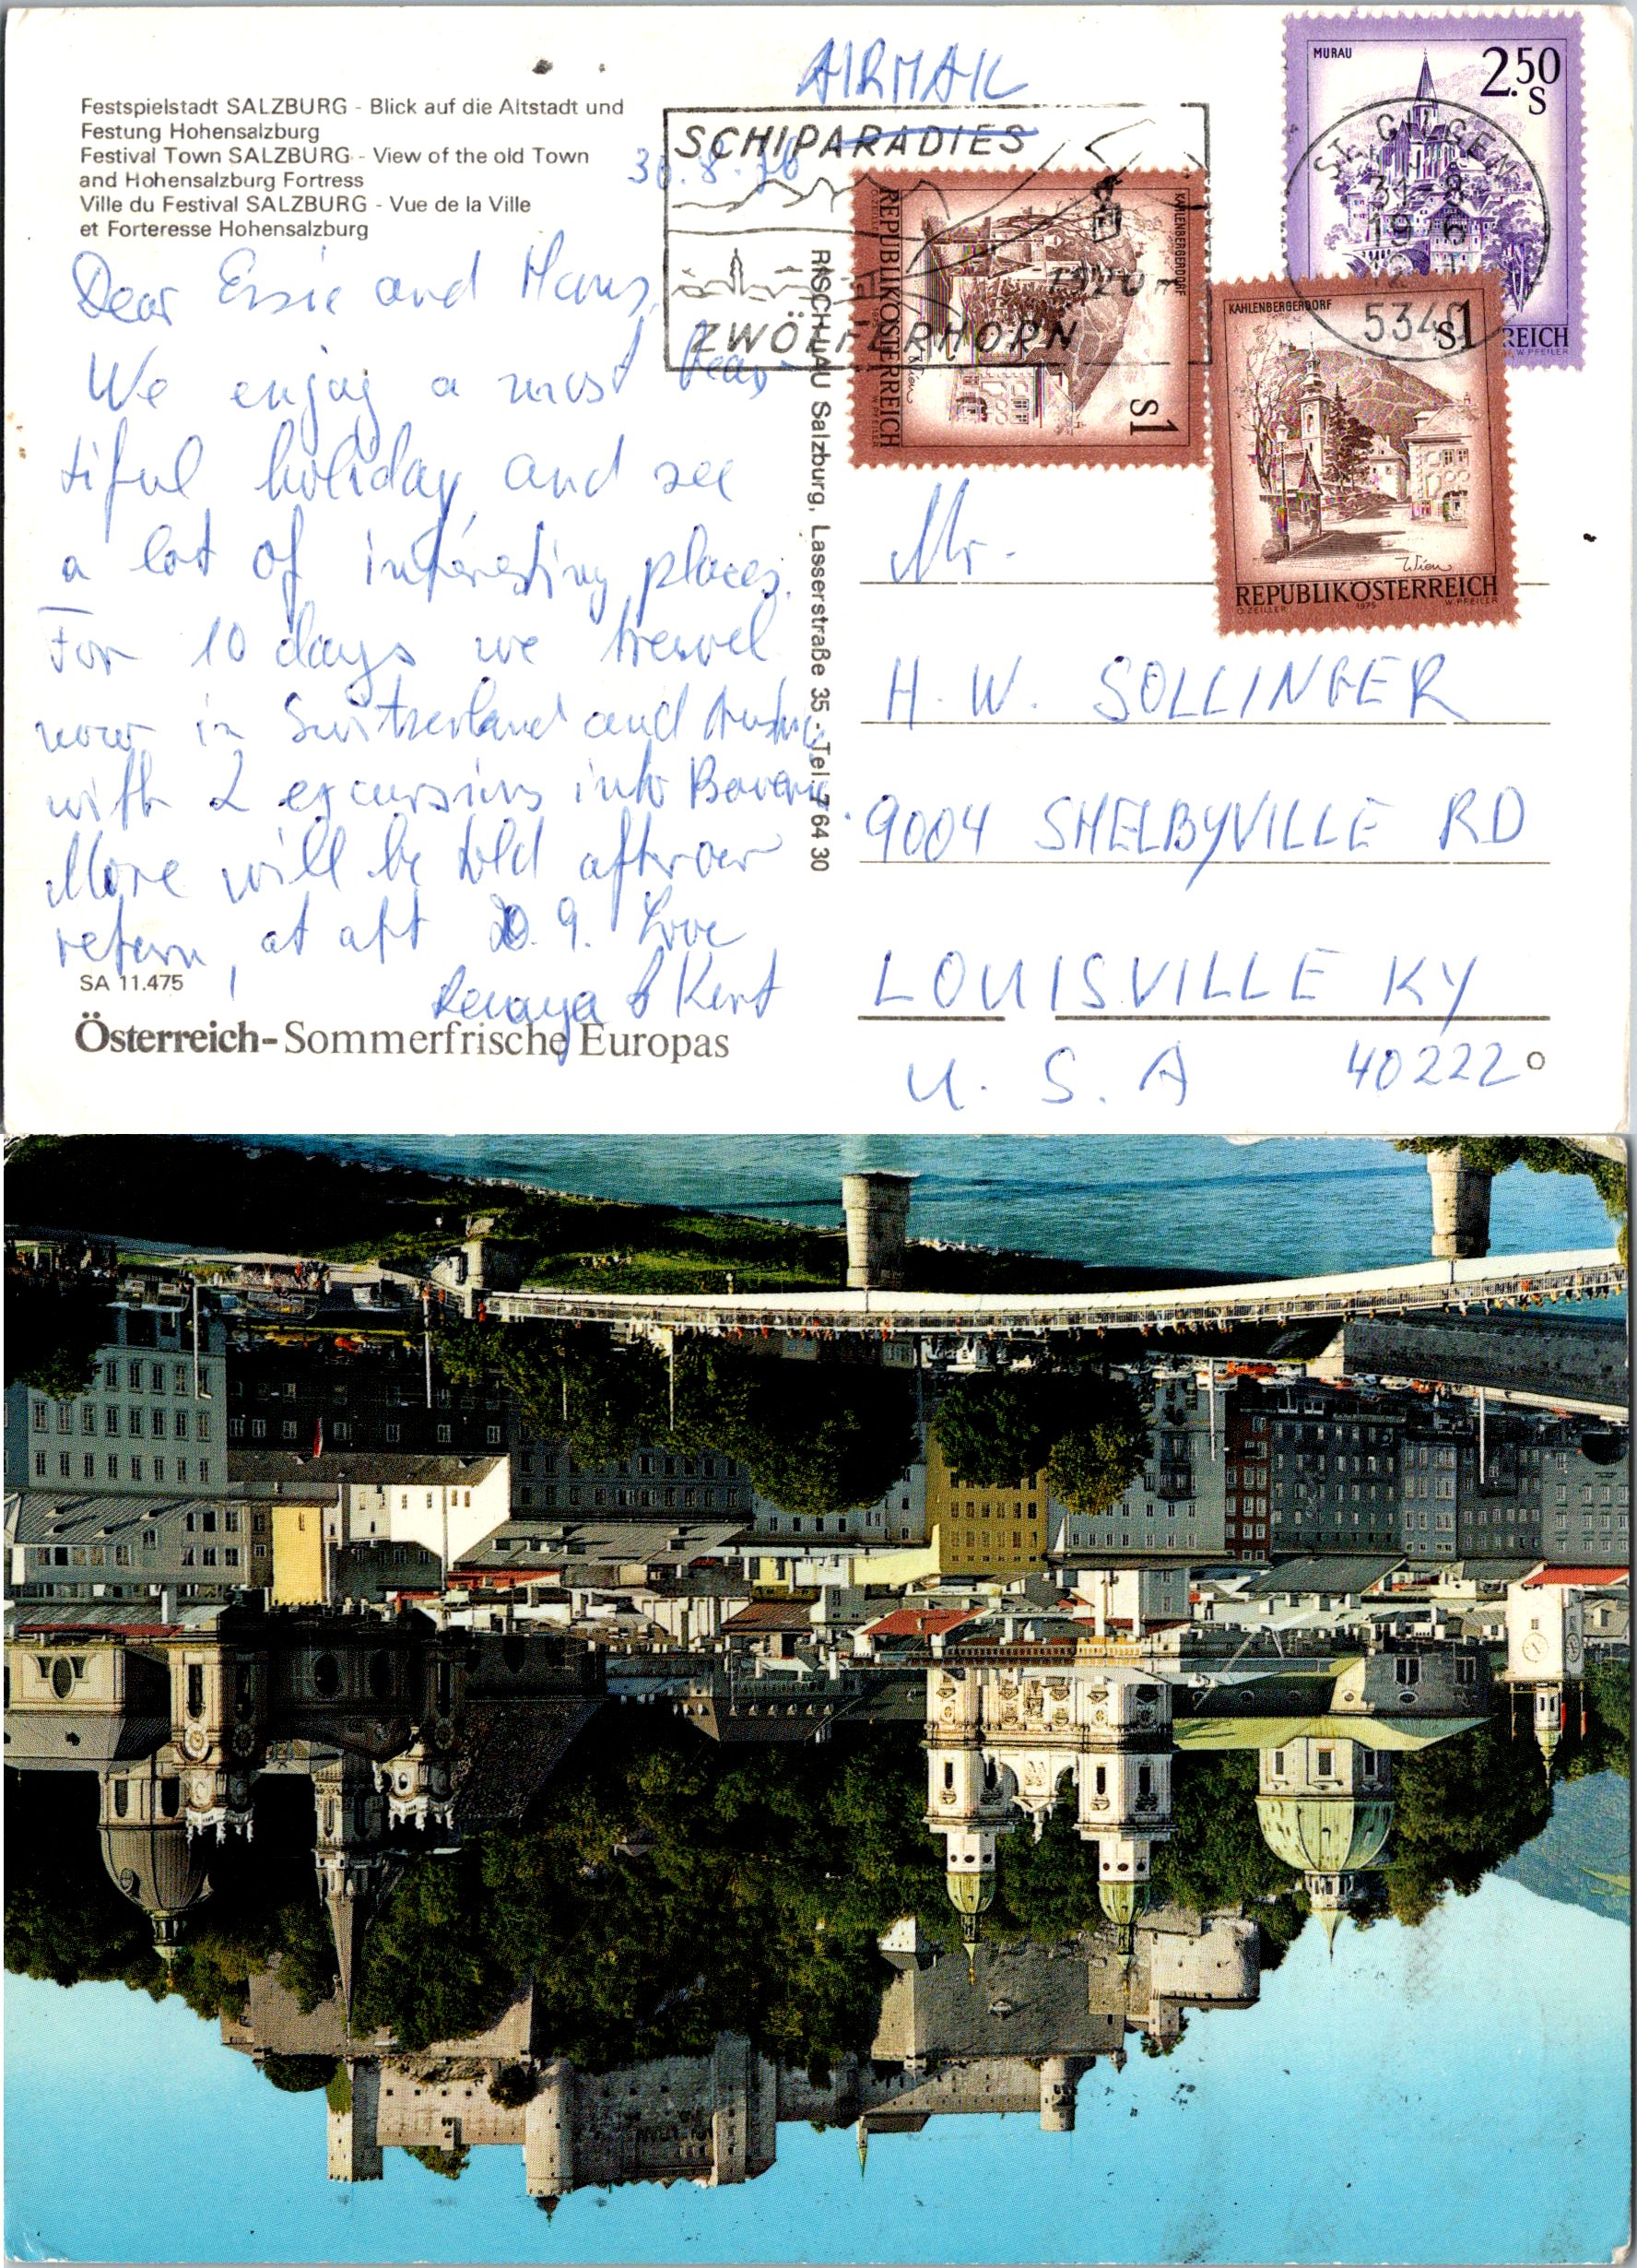 AIRMAIL
Festspielstadt SALZBURG - Blick auf die Altstadt und
Festung Hohensalzburg
Festival Town SALZBURG - View of the old Town
and Hohensalzburg Fortress
Ville du Festival SALZBURG - Vue de la Ville
et Forteresse Hohensalzburg
30.8.76
Dear Essie and Hans,
We enjoy a most beau-
tiful holiday and see
a lot of interesting places.
For 10 days we travel
now in Switzerland and Austria
with 2 excursions into Bavaria.
More will be told after our
return, at aft 20. 9. Love
& Kurt
SA 11.475
Österreich-Sommerfrische Europas
RISCHLAU Salzburg, Lasserstraße 35 - Tel. 7 64 30
SCHIPARADIES
1520 m
ZWÖLFERHORN
KAHLENBERGERDORF
S1
Wien
REPUBLIK ÖSTERREICH
O. ZEILLER
W. PFEILER
MURAU
2.50
S
REICH
W. PFEILER
ST. GILGEN
5340
KAHLENBERGERDORF
S1
Wien
REPUBLIK ÖSTERREICH
O. ZEILLER 1975 W. PFEILER
Mr.
H. W. SOLLINGER
9004 SHELBYVILLE RD
LOUISVILLE KY
U. S. A 40222